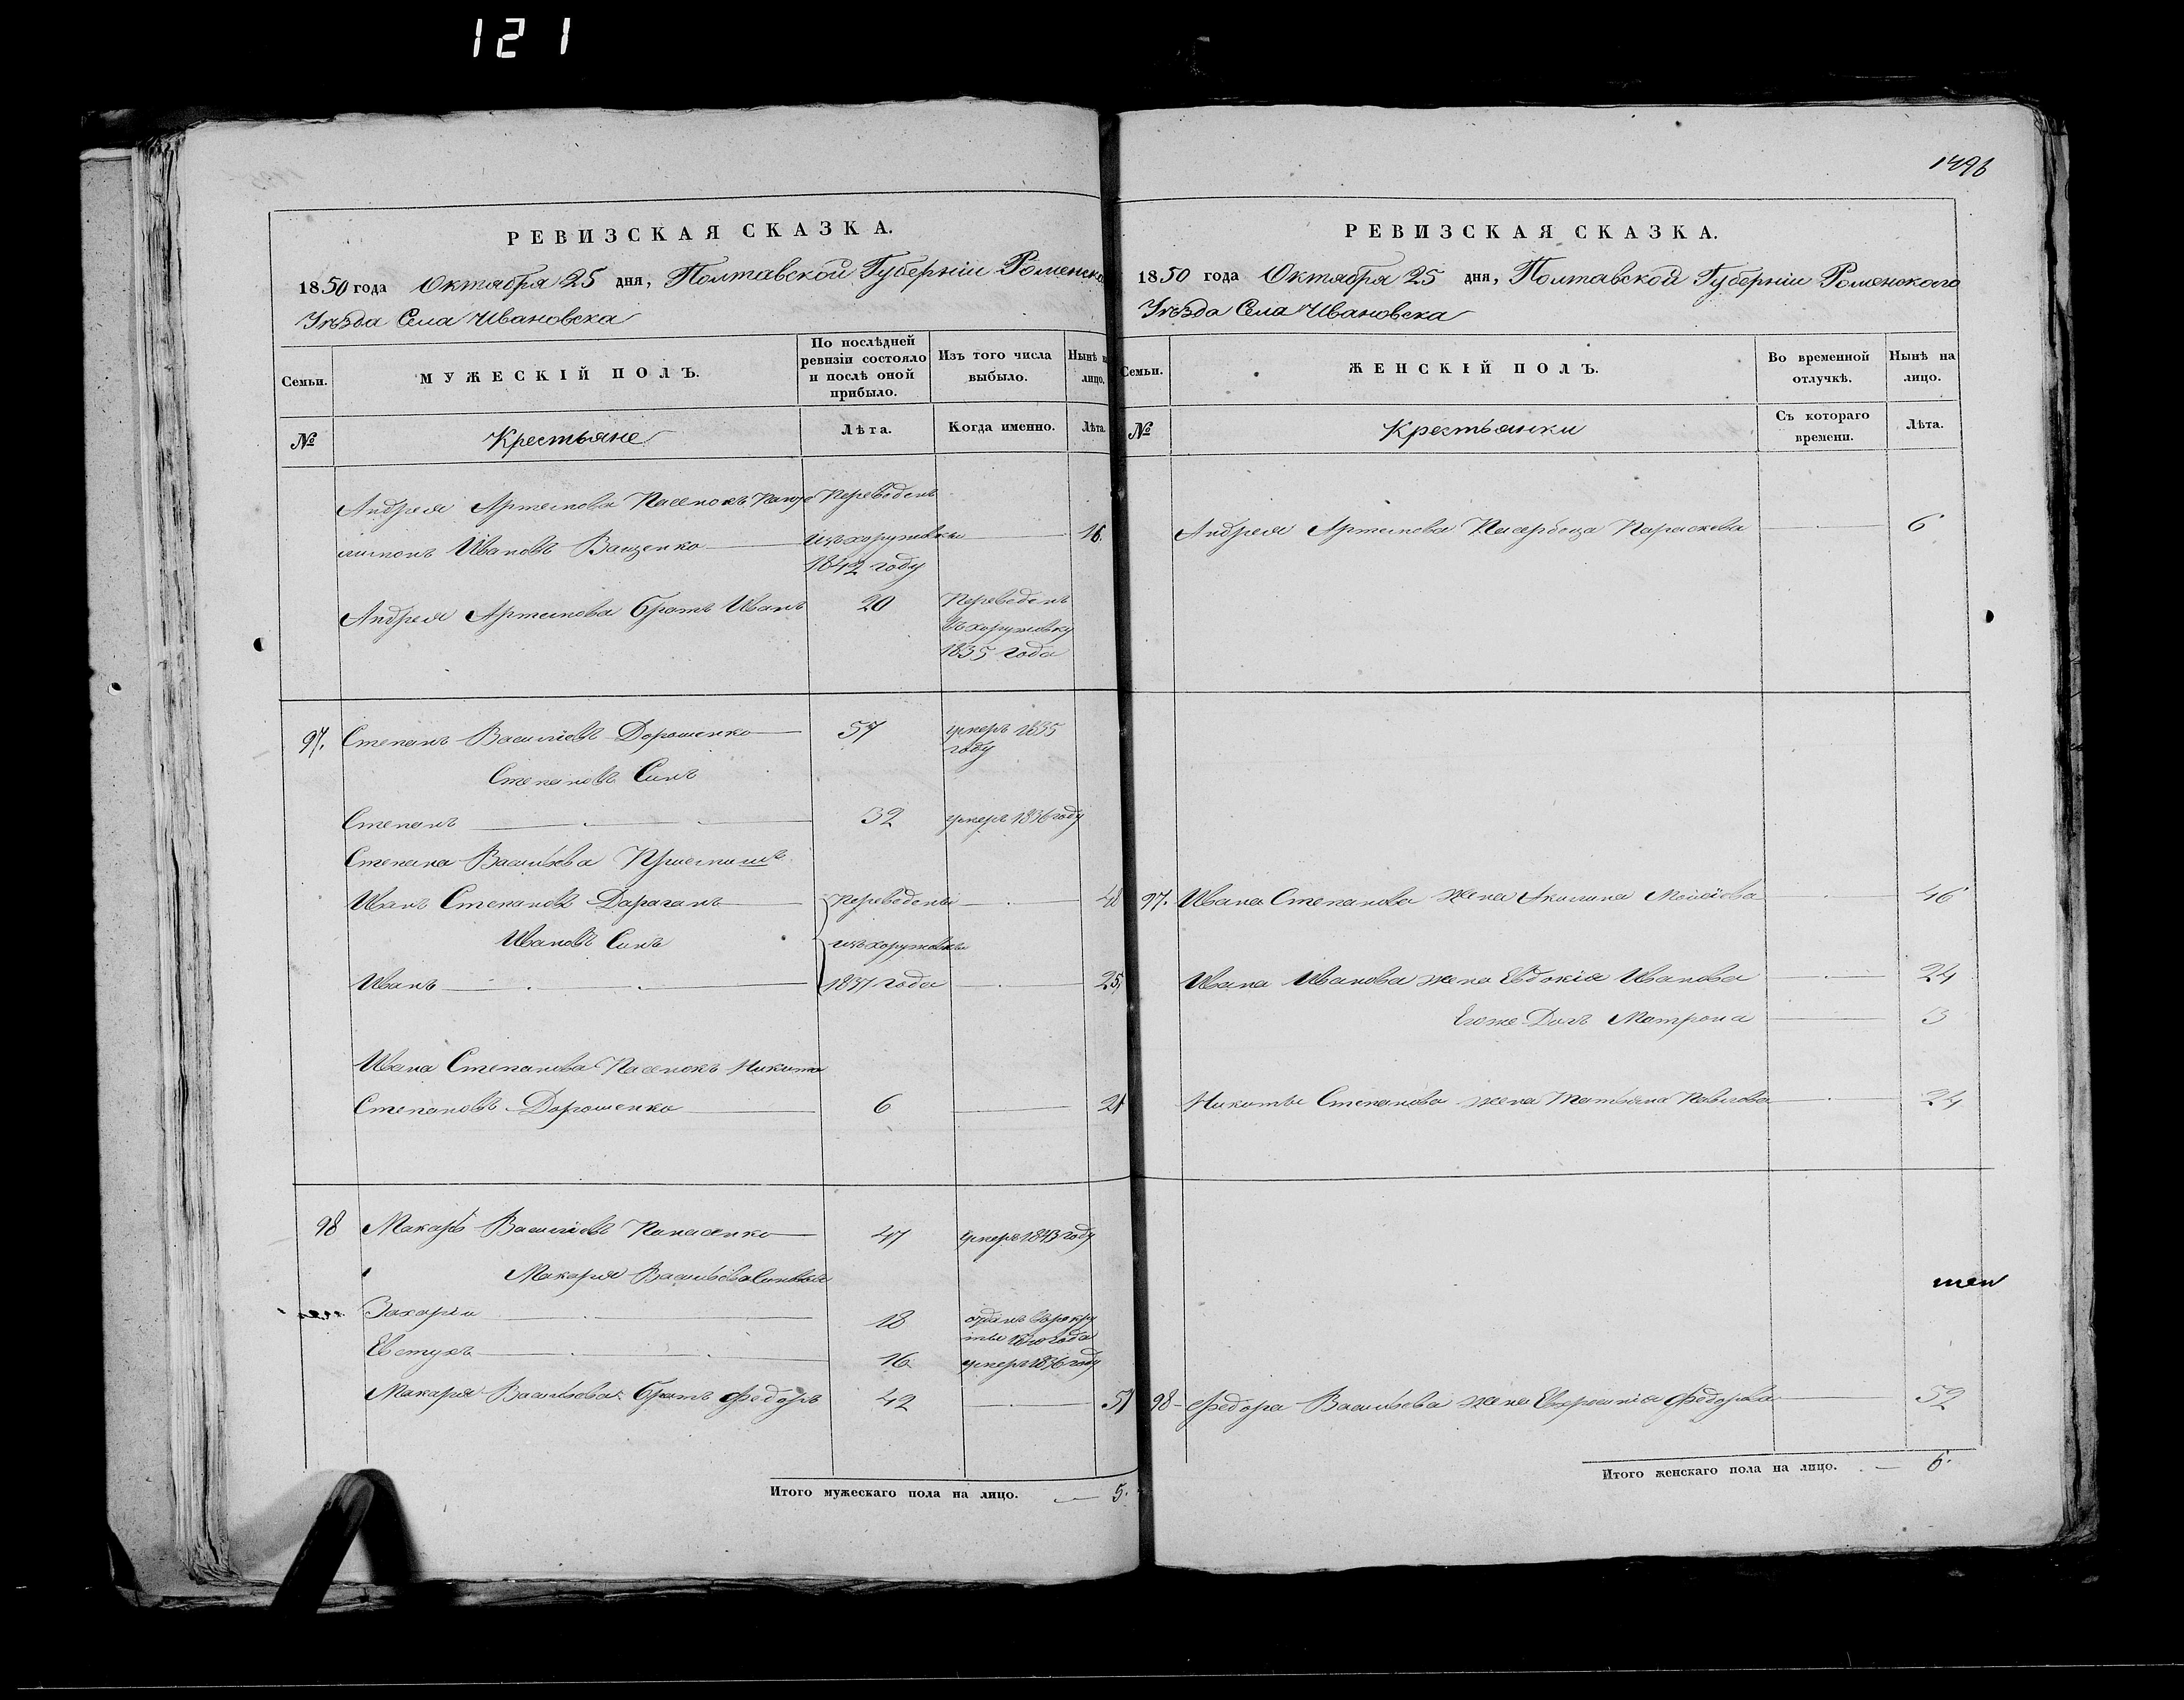 121
1496
РЕВИЗСКАЯ СКАЗКА.
1850 года Октября 25 дня, Полтавской Губерніи Роменска
Уѣзда Села Ивановска
Семьи.
МУЖЕСКІЙ ПОЛЪ.
По послѣдней ревизіи состояло и послѣ оной прибыло.
Изъ того числа выбыло.
Нынѣ
лицо.
№
Крестьяне
Лѣта.
Когда именно.
Лѣта.
Андрея Артемова Пасенокъ Пант Переведенъ
Ивановъ Ващенко изъ хоружовки 16
1842 году
Андрея Артемова братъ Иванъ 20 Переведенъ
въ хоружовку
1835 года
97. Степанъ Васильевъ Дорошенко 57 умеръ 1835
году
Степановъ Синъ
Степанъ 32 умеръ 1836 году
Степана Васильева
Иванъ Степановъ Дараганъ Переведены 48
Ивановъ Синъ изъ хоружовки
Иванъ 1837 года 25
Ивана Степанова Пасенокъ Никита
Степановъ Дорошенко 6 21
98 Макаръ Васильевъ Панасенко 47 умеръ 1843 году
Макария Васильева Синовья
Захарій 18 отданъ
года
Евтухъ 16 умеръ 1836 году
Макария Васильева братъ Федоръ 42 57
Итого мужескаго пола на лицо. 5.
РЕВИЗСКАЯ СКАЗКА.
1850 года Октября 25 дня, Полтавской Губерніи Роменскаго
Уѣзда Села Ивановска
Семьи.
ЖЕНСКІЙ ПОЛЪ.
Во временной отлучкѣ.
Нынѣ на лицо.
№
Крестьянки
Съ котораго времени.
Лѣта.
Андрея Артемова Параскева 6
97. Ивана Степанова жена Акилина Моисіева 46
Ивана Иванова жена Евдокія Иванова 24
Егоже Дочъ Матрона 3
Никиты Степанова жена Татьяна Павлова 24
98 Федора Васильева жена Федорова 52
Итого женскаго пола на лицо. 6.